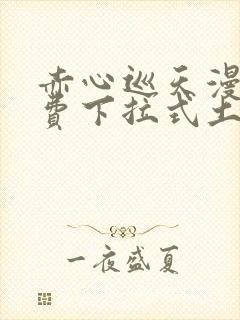 赤心巡天漫
費下拉式土
一夜盛夏